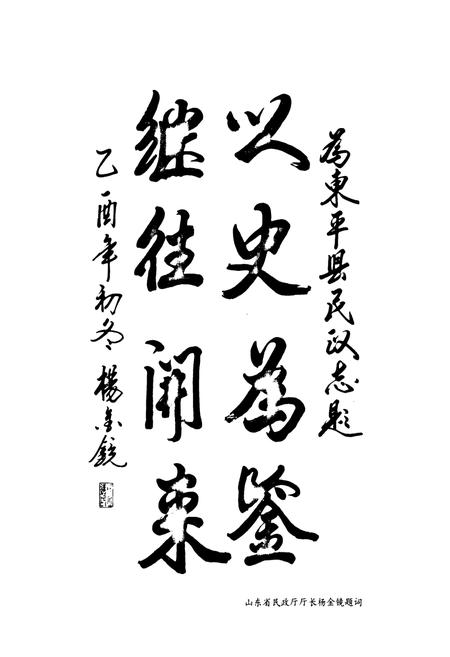 為東平县民政志题
以史為鉴
继往開来
乙酉年初冬 楊金鏡
山东省民政厅厅长杨金镜题词